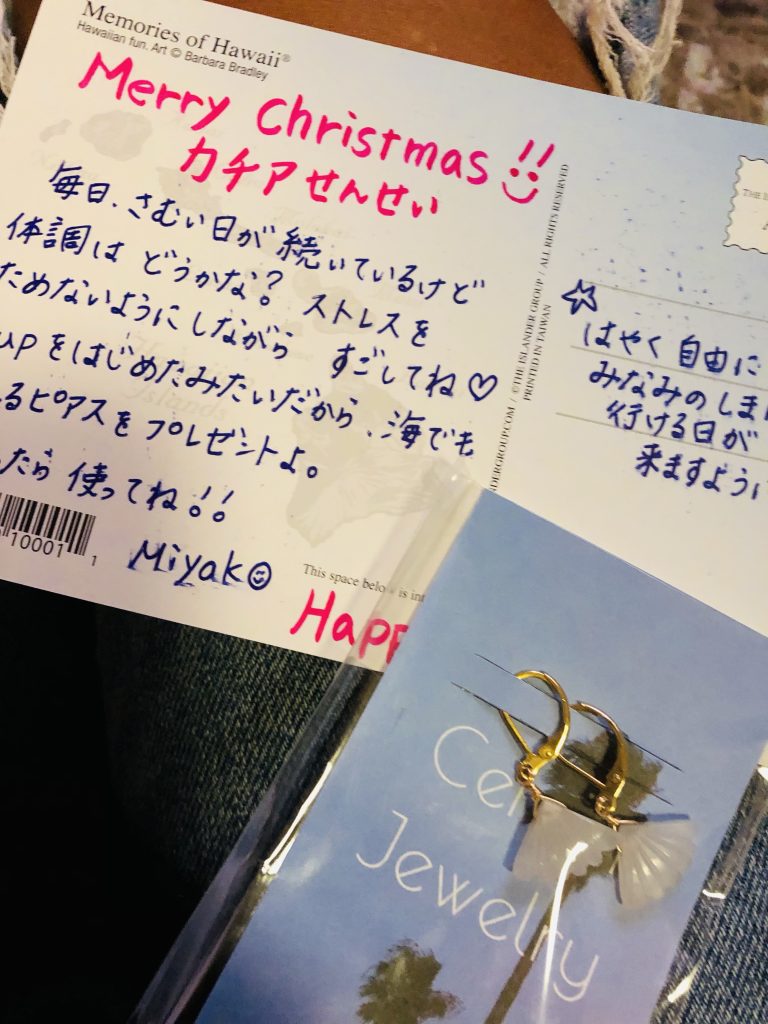 Memories of Hawaii®
Hawaiian fun, Art © Barbara Bradley
Merry Christmas!!
カチアせんせい
毎日、さむい日が続いているけど
体調は どうかな? ストレスを
ためないように しながら すごしてね♡
UPをはじめたみたいだから、海でも
るピアスをプレゼントよ。
たら 使ってね!!
Miyako
10001 1
This space below is
Happ
NDERGROUP.COM / ©THE ISLANDER GROUP / ALL RIGHTS RESERVED
PRINTED IN TAIWAN
THE
☆
はやく 自由に
みなみの しま
行ける日が
来ますように
Ce
Jewelry